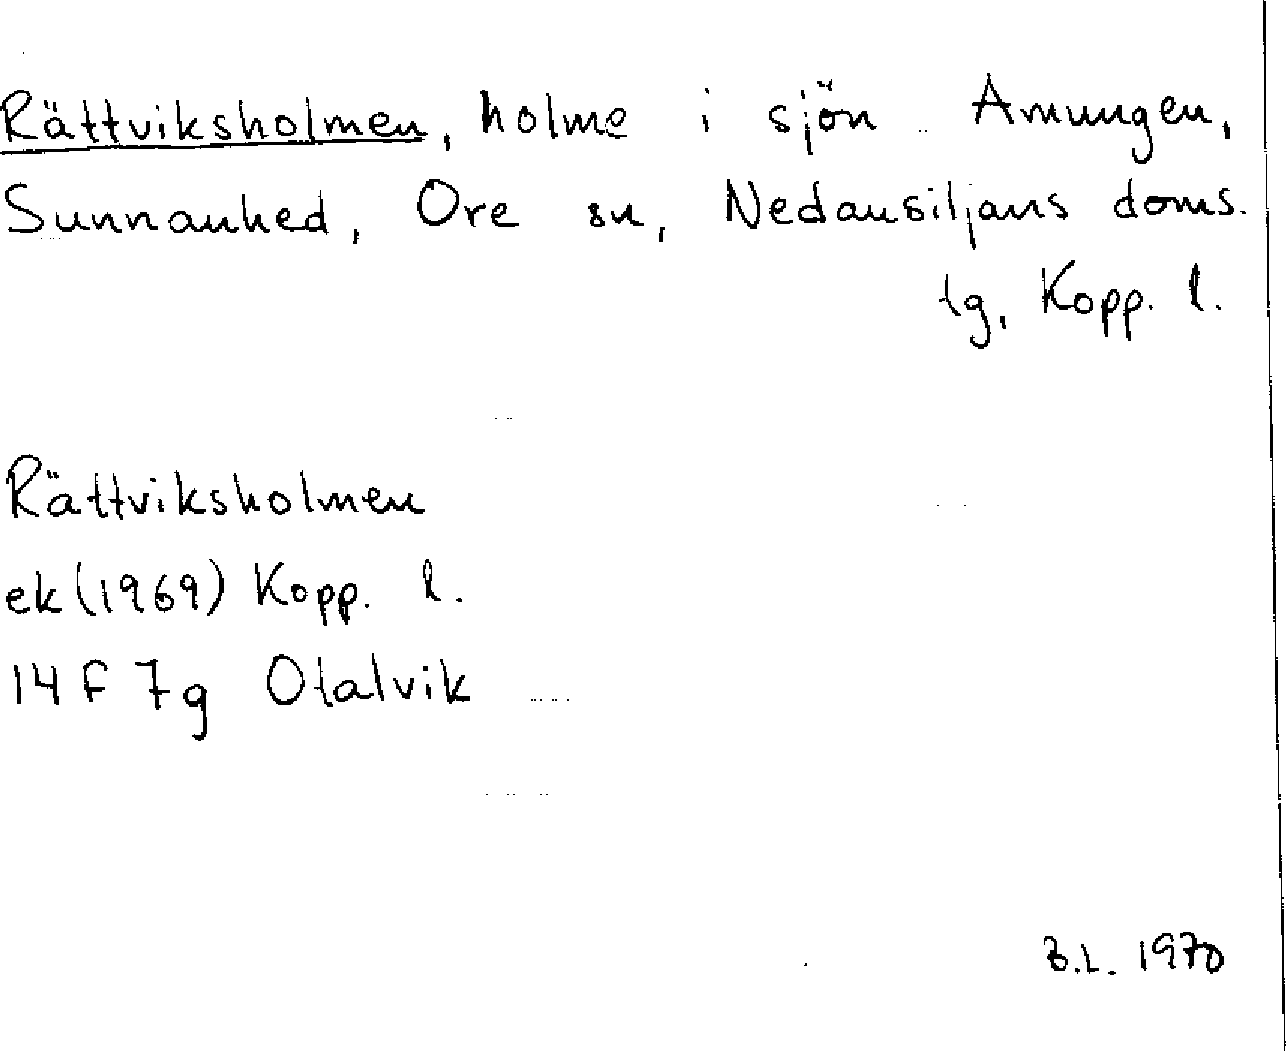 Rättviksholmen, holme i sjön Amungen,
Sunnanhed, Ore sn, Nedansiljans doms.
lg, Kopp. l.
Rättviksholmen
ek (1969) Kopp. l.
14 F 7g Otalvik
B.L. 1970